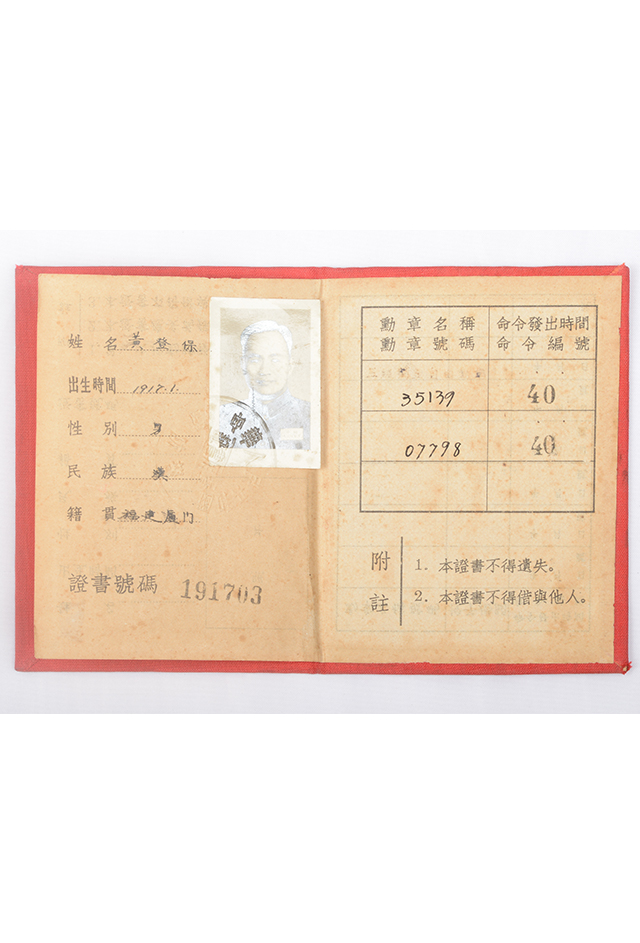 姓名 黃登保
出生時間 1918.1.
性別 男
民族 漢
籍貫 福建廈門
證書號碼 191703
勳章名稱 命令發出時間
勳章號碼 命令編號
35139 40
07798 40
附註
1. 本證書不得遺失。
2. 本證書不得借與他人。